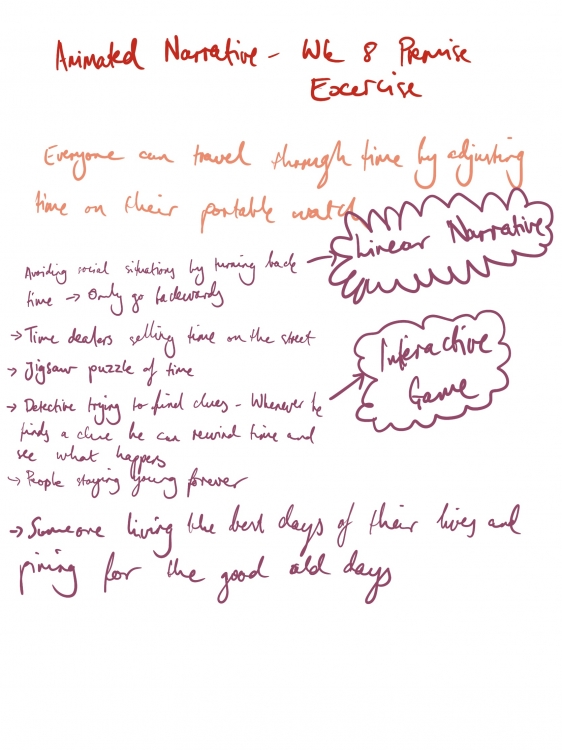 Animated Narrative - Wk 8 Premise
Excercise
Everyone can travel through time by adjusting
time on their portable watch
Linear Narrative
Avoiding social situations by turning back
time → Only go backwards
→ Time dealers selling time on the street
→ Jigsaw puzzle of time
Interactive
Game
→ Detective trying to find clues - Whenever he
finds a clue he can rewind time and
see what happens
→ People staying young forever
→ Someone living the best days of their lives and
pining for the good old days